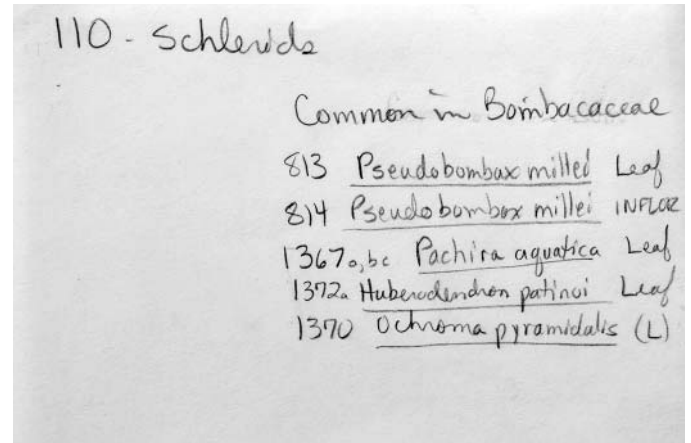 110 - Schlerids
Common in Bombacaceae
813 Pseudobombax millei Leaf
814 Pseudobombax millei INFLOR
1367a,bc Pachira aquatica Leaf
1372a Huberodendron patinoi Leaf
1370 Ochroma pyramidalis (L)